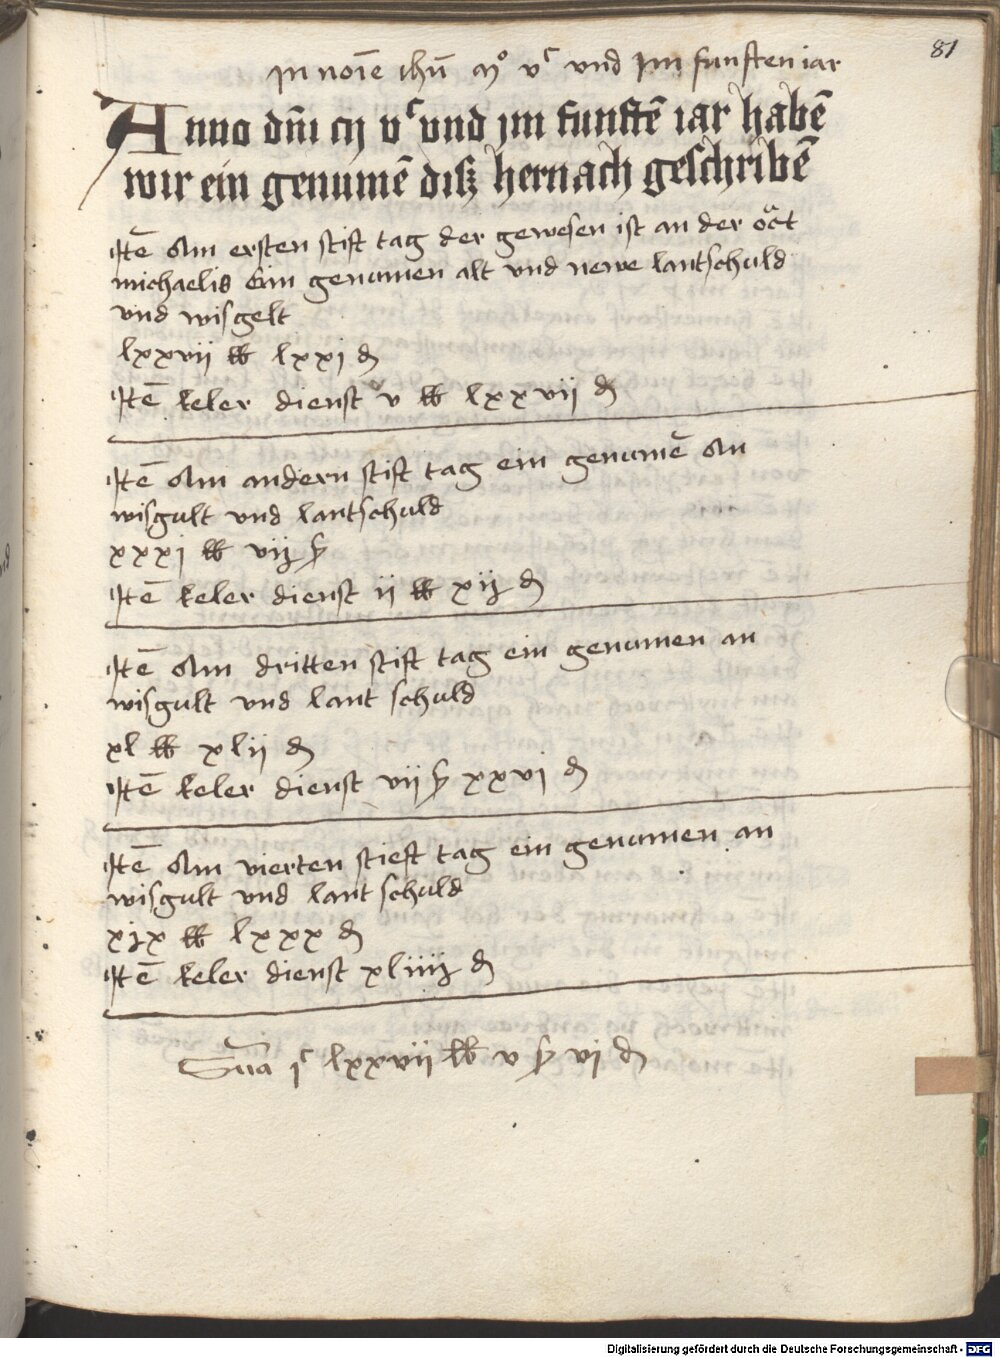 81
In no͞ie ihū mº vᶜ und Im funften iar
Anno dn̄i m vᶜ vnd jm funftē iar habē
wir ein genumē diß hernach geschribē
Itē Am ersten stift tag der gewesen ist an der oct̄
michaelis Ein genumen alt vnd newe lantschuld
vnd wisgelt
lxxvii ℔ lxxj ₰
Itē keler dienst v ℔ lxxvii ₰
Itē Am andern stift tag ein genumē An
wisgult vnd lantschuld
xxxj ℔ vij ß
Itē keler dienst ii ℔ xij ₰
Itē Am dritten stift tag ein genumen an
wisgult vnd lant schuld
xl ℔ xlii ₰
Itē keler dienst vii ß xxvj ₰
Itē Am vierten stieft tag ein genumen an
wisgult vnd lant schuld
xjx ℔ lxxx ₰
Itē keler dienst xliiij ₰
Sūa jᶜ lxxvii ℔ v ß vj ₰
Digitalisierung gefördert durch die Deutsche Forschungsgemeinschaft - DFG